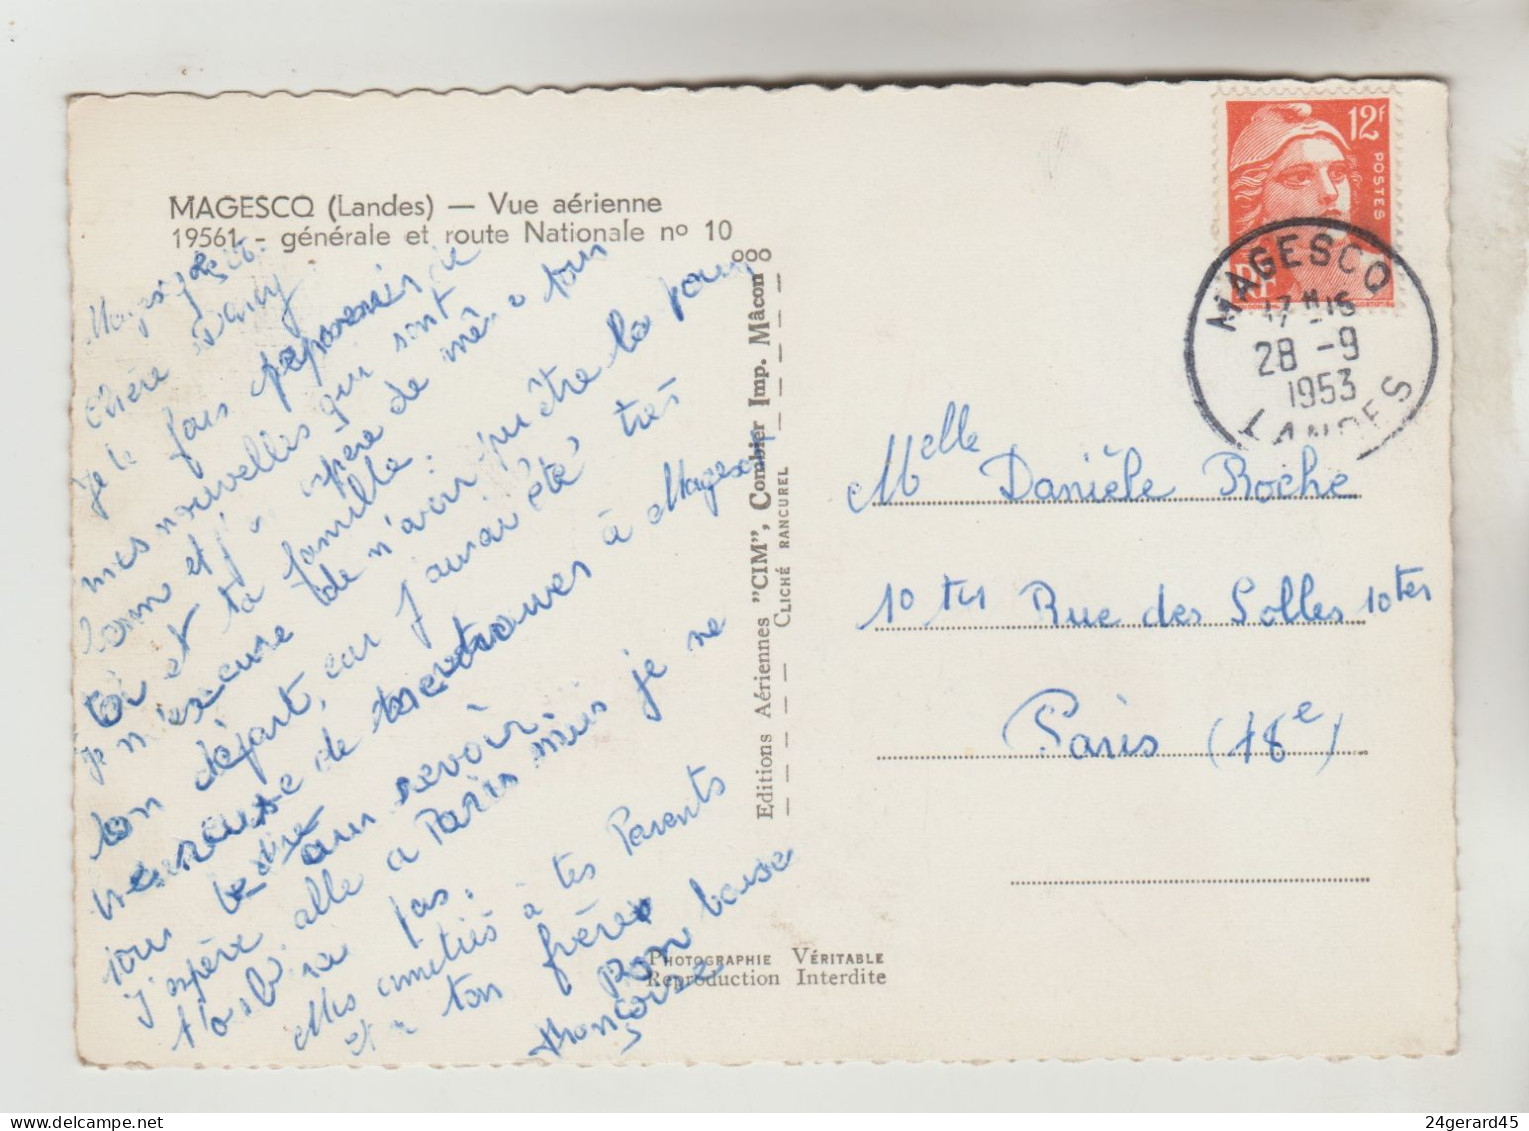 MAGESCQ (Landes) — Vue aérienne
19561 - générale et route Nationale no 10
chère Dany
je te fais
mes nouvelles qui sont
bonn et j' espère de mê e tous
toi et ta famille.
je m'excuse de n'avoir pu être la pour
ton départ, car j'aurai été très
heureuse de te retrouver à Magescq
tous te dire au revoir
j'espère allé a Paris mais je ne
pas.
Mes amitiés à tes Parents
et a ton frère
Bon baise
Françoise
ooo
Editions Aériennes "CIM", Combier Imp. Mâcon
CLICHÉ RANCUREL
PHOTOGRAPHIE VÉRITABLE
Reproduction Interdite
12F
POSTES
RF
MAGESCQ
28 -9
1953
LANDES
Melle Danièle Roche
10 ter Rue des Solles 10ter
Paris (18e)
24gerard45